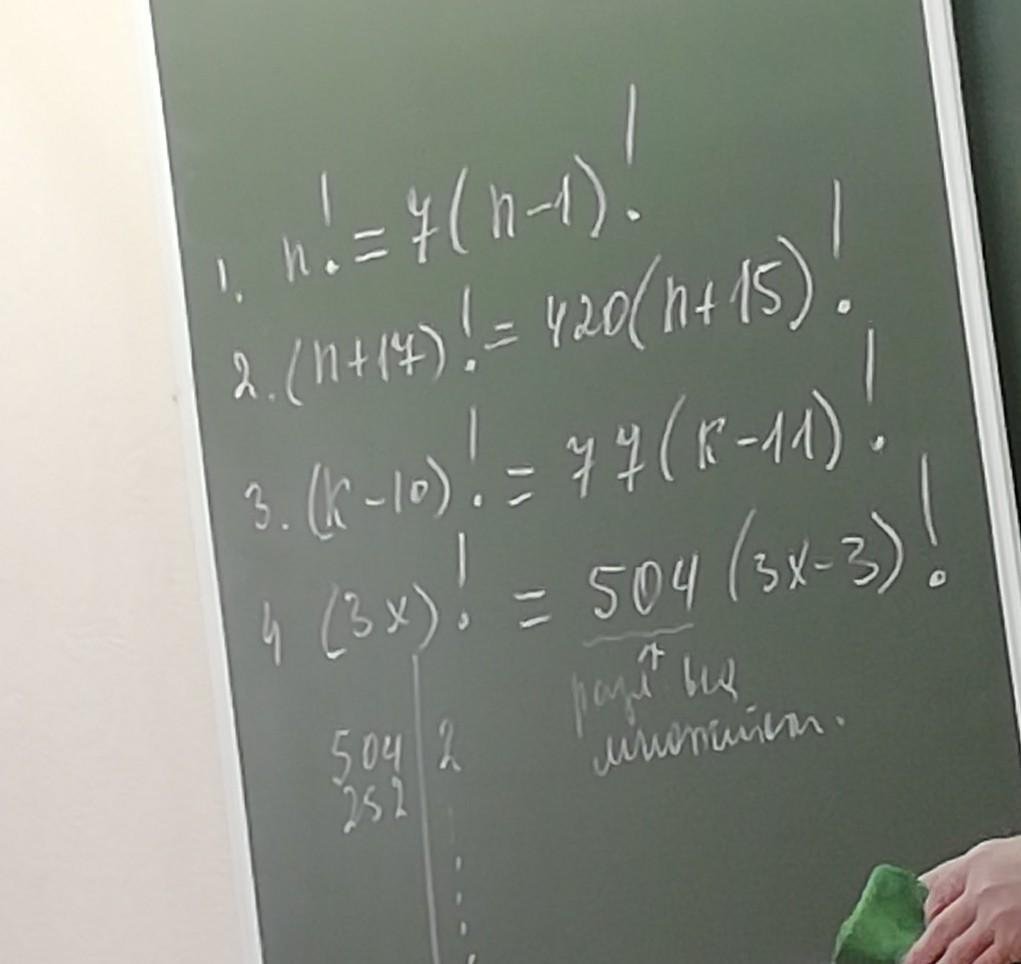 1. n! = 7(n-1)!
2. (n+17)! = 420(n+15)!
3. (к-10)! = 77(к-11)!
4 (3x)! = 504 (3x-3)!
504 | 2
252
на
множители.